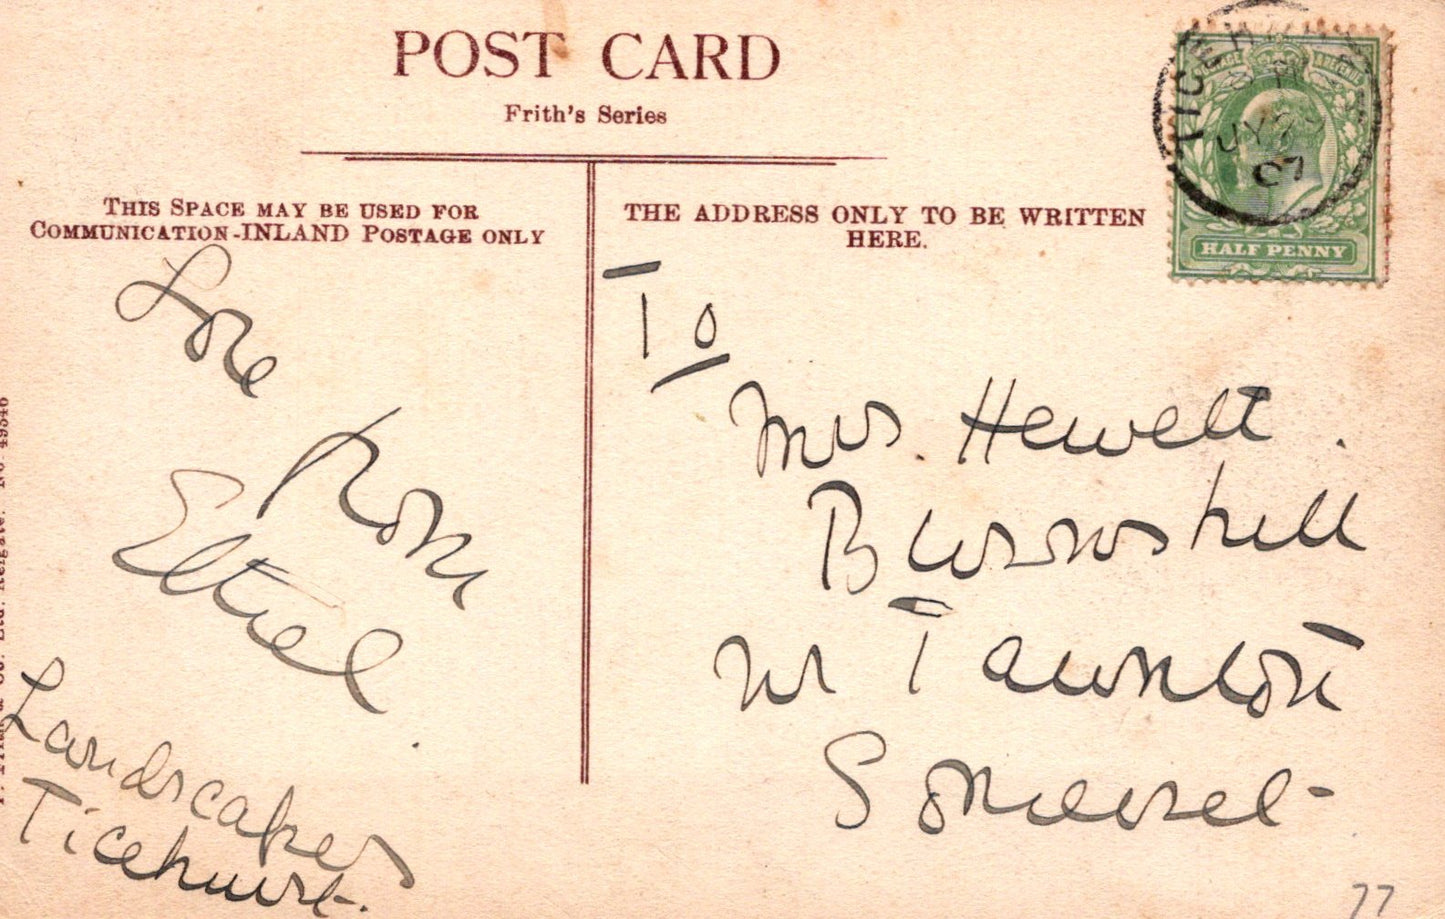 POST CARD
Frith's Series
THIS SPACE MAY BE USED FOR
COMMUNICATION-INLAND POSTAGE ONLY
THE ADDRESS ONLY TO BE WRITTEN
HERE.
TICEHURST
JY
07
POSTAGE REVENUE
HALF PENNY
Love
from
Ethel
Landscapes
Ticehurst.
To
Mrs. Hewett.
Burrowshill
Nr Taunton
Somerset-
Ltd. Reigate. No 49346
77